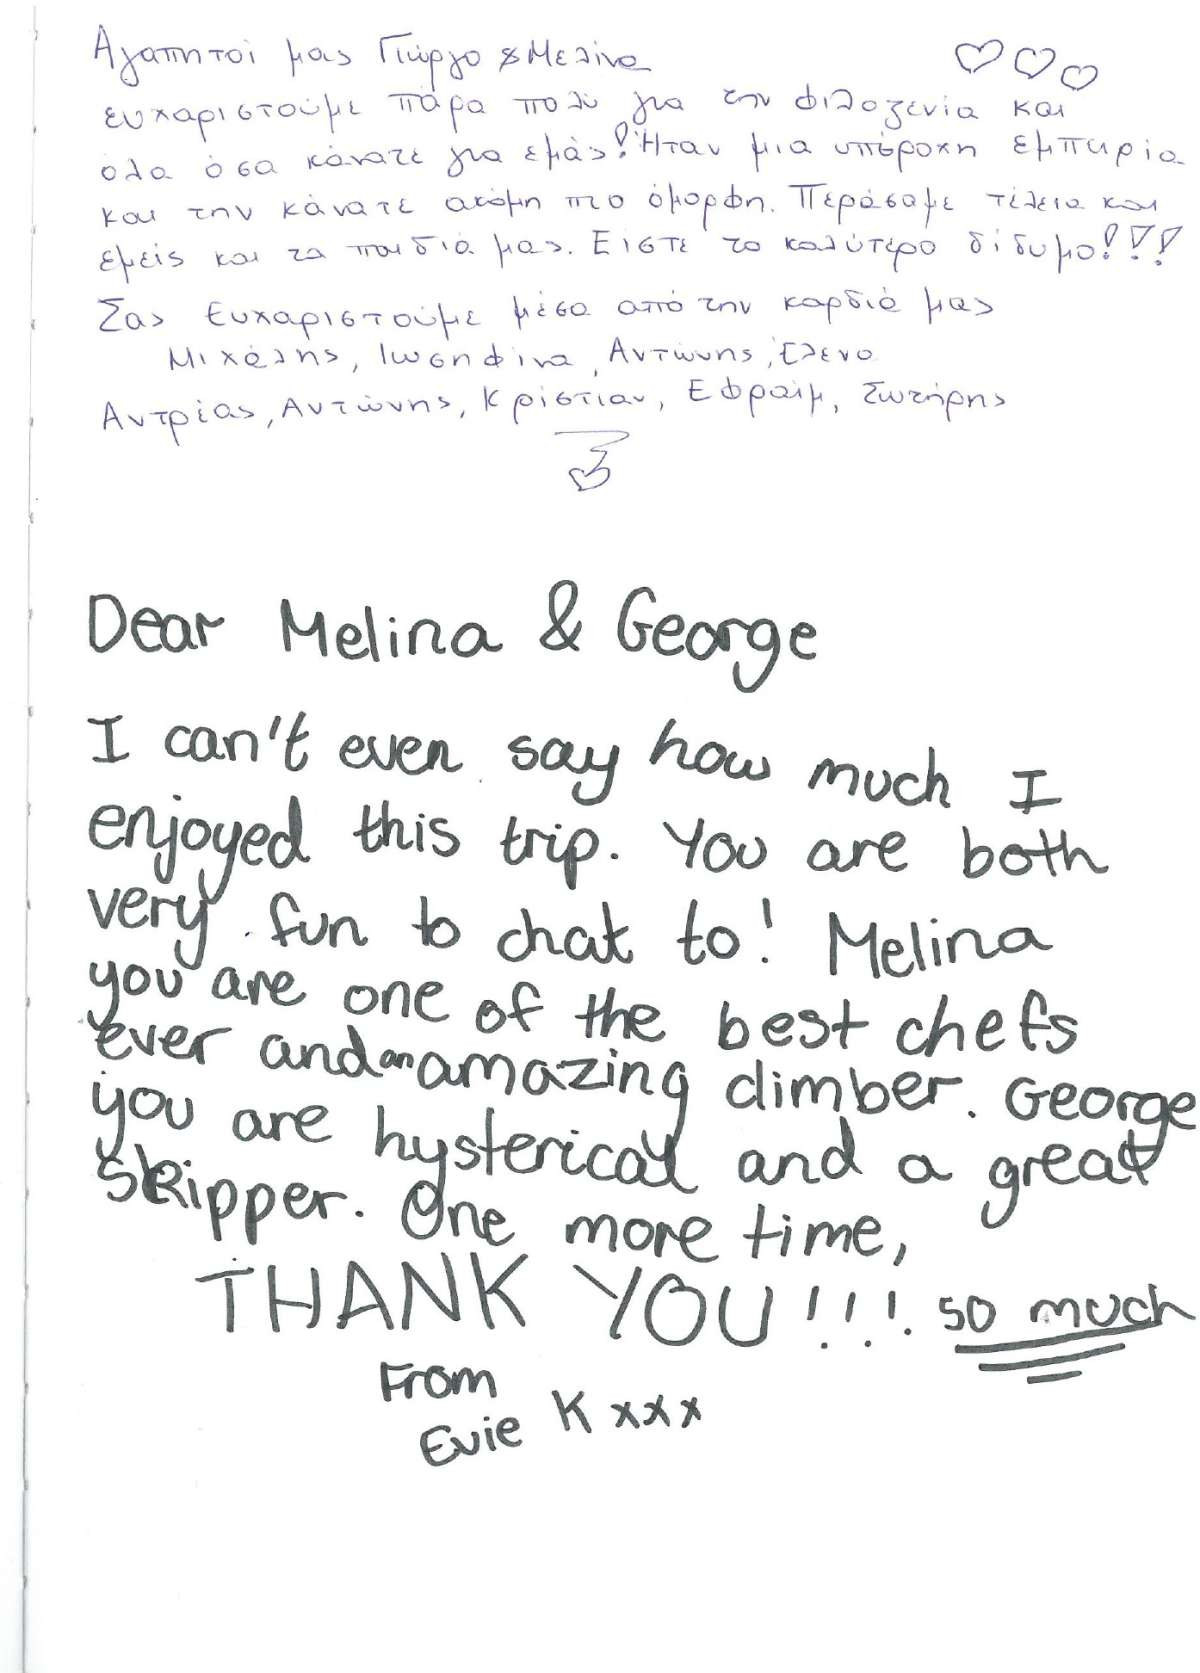 Αγαπητοί μας Γιώργο & Μελίνα
ευχαριστούμε πάρα πολύ για την φιλοξενία και
όλα όσα κάνατε για εμάς! Ήταν μια υπέροχη εμπειρία
και την κάνατε ακόμη πιο όμορφη. Περάσαμε τέλεια και
εμείς και τα παιδιά μας. Είστε το καλύτερο δίδυμο!!!
Σας Ευχαριστούμε μέσα από την καρδιά μας
Μιχάλης, Ιωσηφίνα, Αντώνης, Έλενα
Αντρέας, Αντώνης, Κρίστιαν, Εφραίμ, Σωτήρης
Dear Melina & George
I can't even say how much I
enjoyed this trip. You are both
very fun to chat to! Melina
you are one of the best chefs
ever and an amazing climber. George
you are hysterical and a great
skipper. One more time,
THANK YOU!!!! so much
From
Evie K xxx